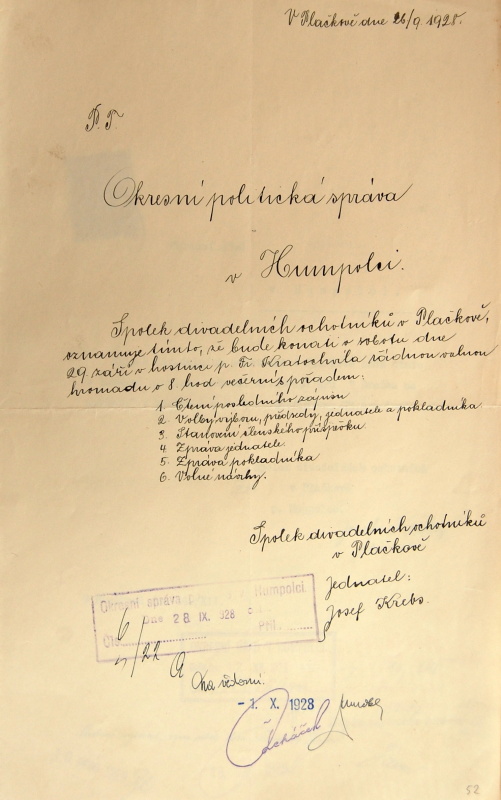 V Plačkově dne 26/9. 1928.
P. T.
Okresní politická správa
v Humpolci.
Spolek divadelních ochotníků v Plačkově,
oznamuje tímto, že bude konati v sobotu dne
29. září v hostinci p. Fr. Kratochvíla řádnou valnou
hromadu o 8 hod večer s pořadem:
1. Čtení posledního zápisu
2. Volby výboru, předsedy, jednatele a pokladníka
3. Stanovení členského příspěvku
4. Zpráva jednatele
5. Zpráva pokladníka
6. Volné návrhy.
Spolek divadelních ochotníků
v Plačkově
Jednatel:
Josef Krebs.
Okresní správa Humpolci
Dne 28. IX. 928
Čís. Příl.
6/22
Na vědomí.
-1. X. 1928
52